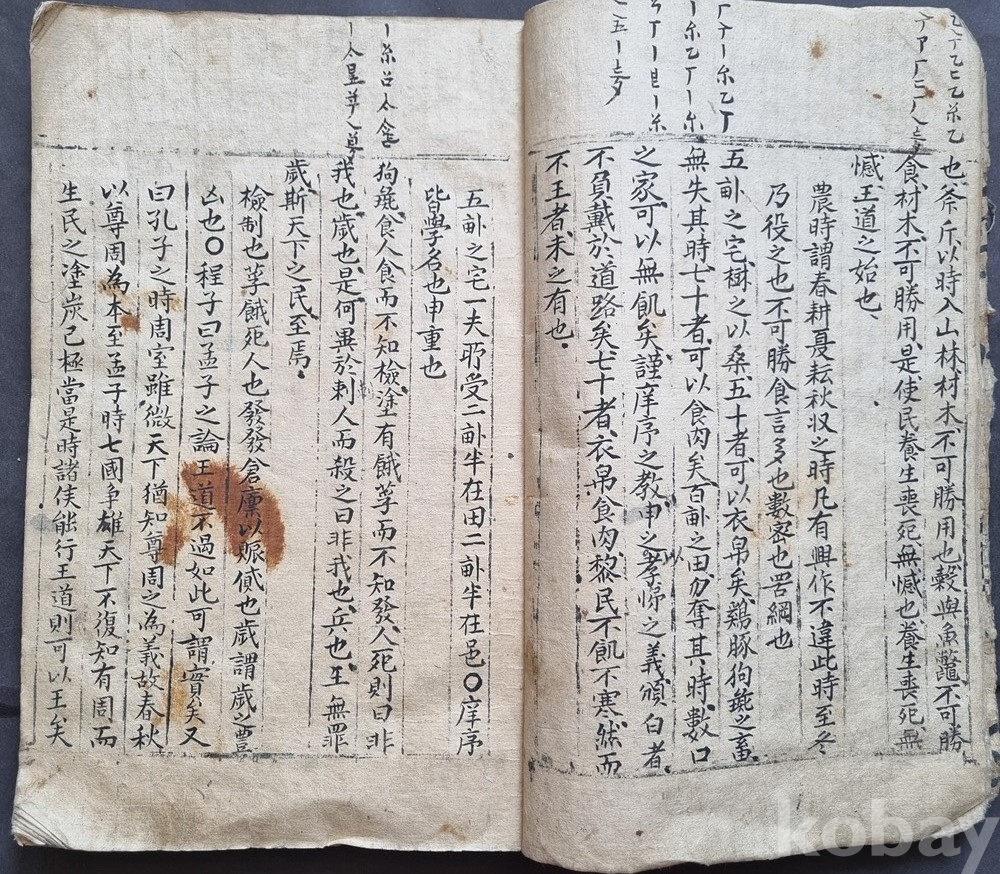 也斧斤以時入山林材木不可勝用也穀與魚鼈不可勝
食材木不可勝用是使民養生喪死無憾也養生喪死無
憾王道之始也
農時謂春耕夏耘秋収之時凡有興作不違此時至冬
乃役之也不可勝食言多也數密也罟網也
五畝之宅樹之以桑五十者可以衣帛矣鷄豚狗彘之畜
無失其時七十者可以食肉矣百畝之田勿奪其時數口
之家可以無飢矣謹庠序之教申之以孝悌之義頒白者
不負戴於道路矣七十者衣帛食肉黎民不飢不寒然而
不王者未之有也
五畝之宅一夫所受二畝半在田二畝半在邑〇庠序
皆學名也申重也
狗彘食人食而不知檢塗有餓莩而不知發人死則曰非
我也歲也是何異於刺人而殺之曰非我也兵也王無罪
歲斯天下之民至焉
檢制也莩餓死人也發發倉廩以賑貸也歲謂歲之豊
凶也〇程子曰孟子之論王道不過如此可謂實矣又
曰孔子之時周室雖微天下猶知尊周之為義故春秋
以尊周為本至孟子時七國爭雄天下不復知有周而
生民之塗炭已極當是時諸侯能行王道則可以王矣
kobay